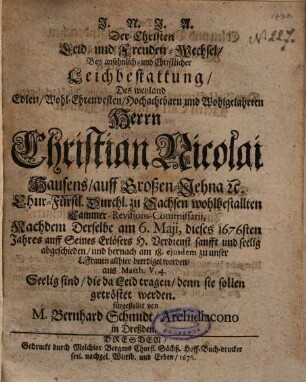 N. 227.
J. N. J. A.
Der Christen
Leid- und Freuden-Wechsel/
Bey ansehnlich- und Christlicher
Leichbestattung/
Des weyland
Edlen/ Wohl-Ehrenvesten/ Hochachtbarn und Wohlgelahrten
Herrn
Christian Nicolai
Hausens/ auff Großen-Jehna ꝛc.
Chur-Fürstl. Durchl. zu Sachsen wohlbestallten
Cammer-Revisions-Commissarii,
Nachdem Derselbe am 6. Maji, dieses 1676sten
Jahres auff Seines Erlösers H. Verdienst sanfft und seelig
abgeschieden/ und hernach am 18. ejusdem zu unser
L. Frauen allhier beerdiget worden/
aus Matth. V. 4.
Seelig sind/ die da Leid tragen/ denn sie sollen
getröstet werden.
fürgestellet von
M. Bernhard Schmidt/ Archidiacono
in Dresden.
DRESDEN/
Gedruckt durch Melchior Bergens Churf. Sächß. Hoff-Buch-drucker
seel. nachgel. Wittib. und Erben/ 1676.